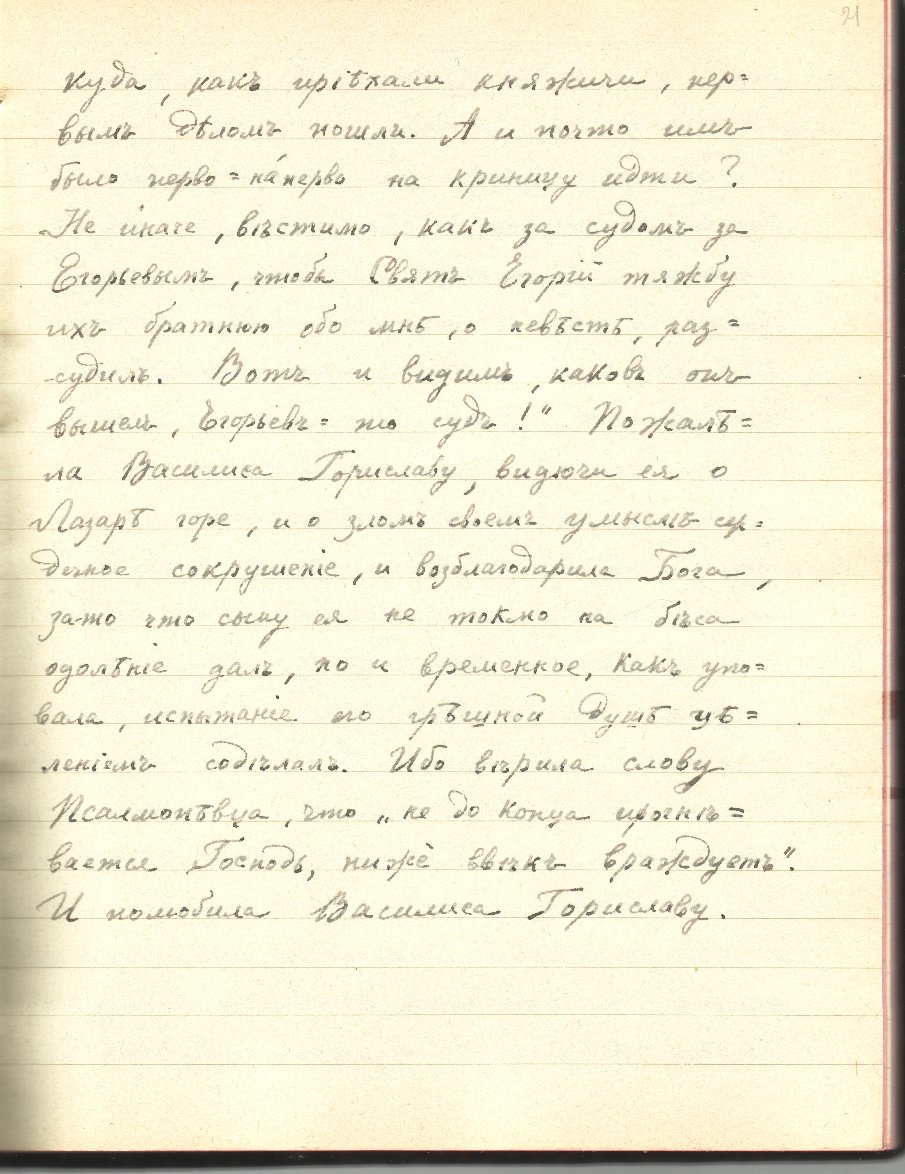 21
куда, какъ пріѣхали княжичи, пер=
вымъ дѣломъ пошли. А и почто имъ
было перво=на́перво на криницу идти?
Не иначе, вѣстимо, какъ за судомъ за
Егорьевымъ, чтобы Святъ Егорій тяжбу
ихъ братнюю обо мнѣ, о невѣстѣ, раз=
судилъ. Вотъ и видимъ, каковъ онъ
вышелъ, Егорьевъ=то судъ!" Пожалѣ=
ла Василиса Гориславу, видючи ея о
Лазарѣ горе, и о зломъ своемъ умыслѣ сер=
дечное сокрушеніе, и возблагодарила Бога,
за-то что сыну ея не токмо на бѣса
одолѣніе далъ, но и временное, какъ упо=
вала, испытаніе его грѣшной душѣ цѣ=
леніемъ содѣлалъ. Ибо вѣрила слову
Псалмопѣвца, что „не до конца прогнѣ=
вается Господь, ниже ввѣкъ враждуетъ".
И полюбила Василиса Гориславу.